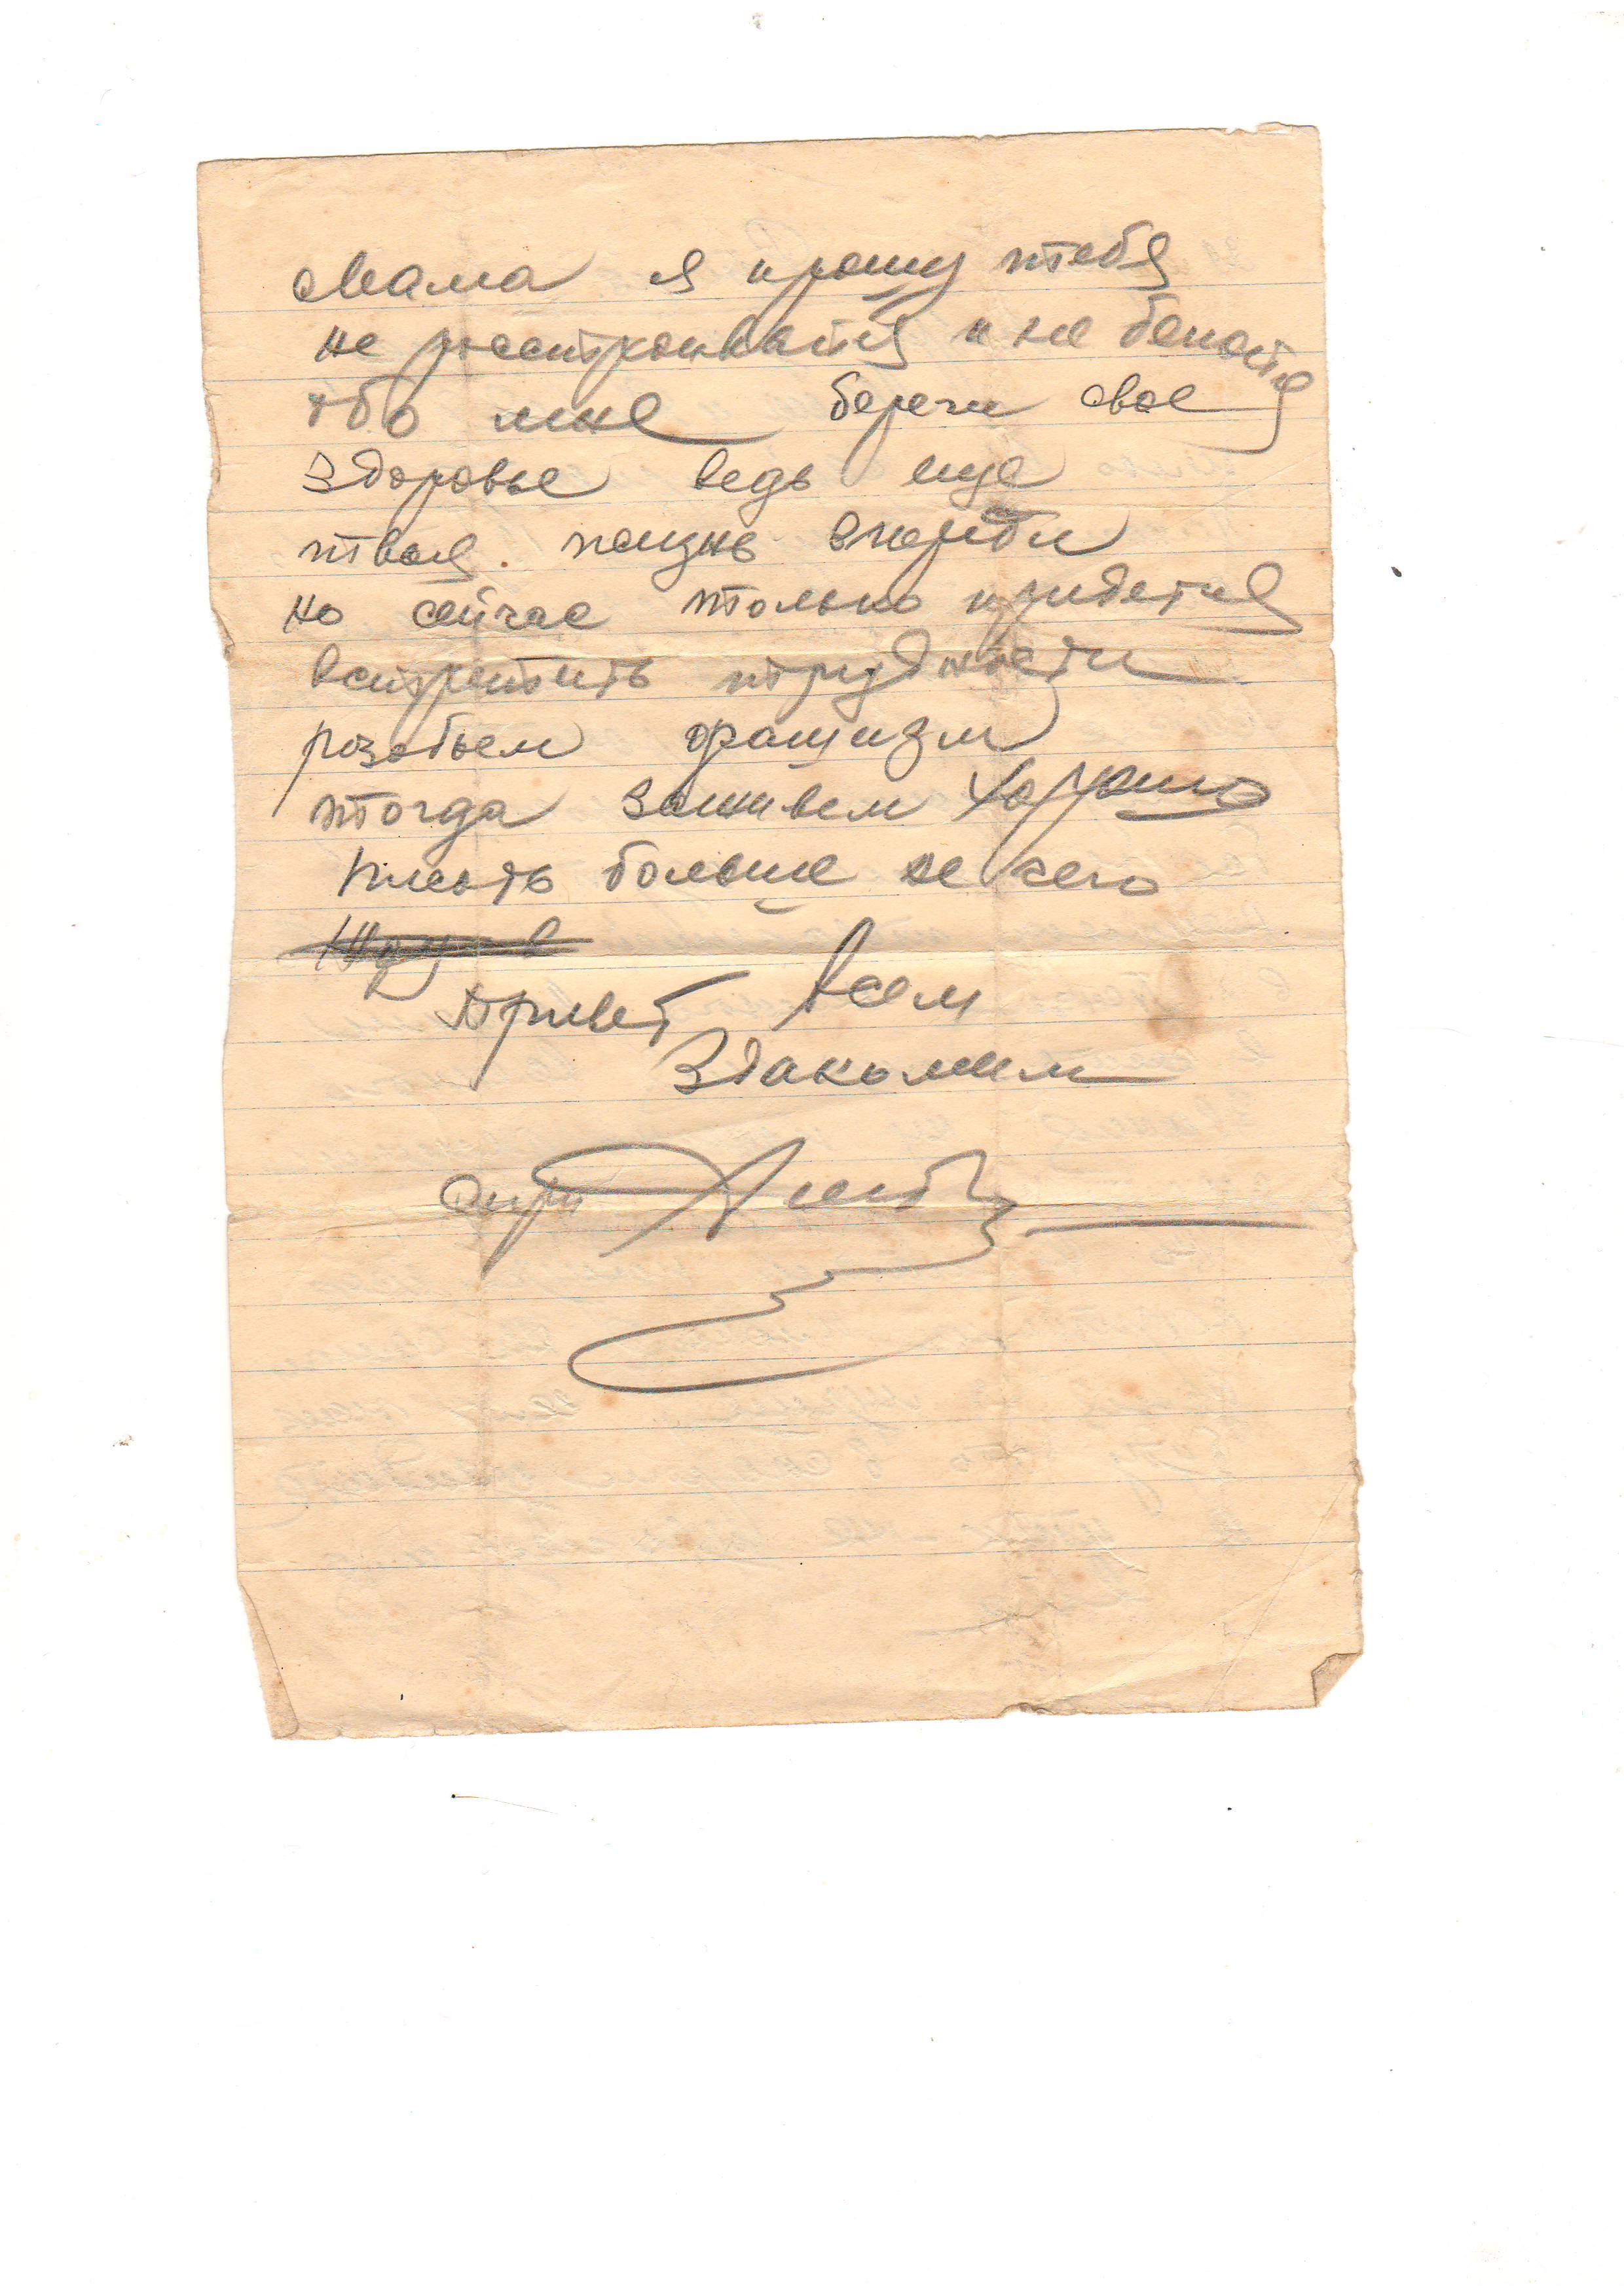 Мама я прошу тебя
не расстроиваться и не беспокоится
обо мне береги свое
здоровье ведь еще
твоя жизнь впереди
но сейчас только придется
встретить трудности
розобьем фашизм
тогда заживем хорошо
Писать больше не чего
Привет всем
Знакомим